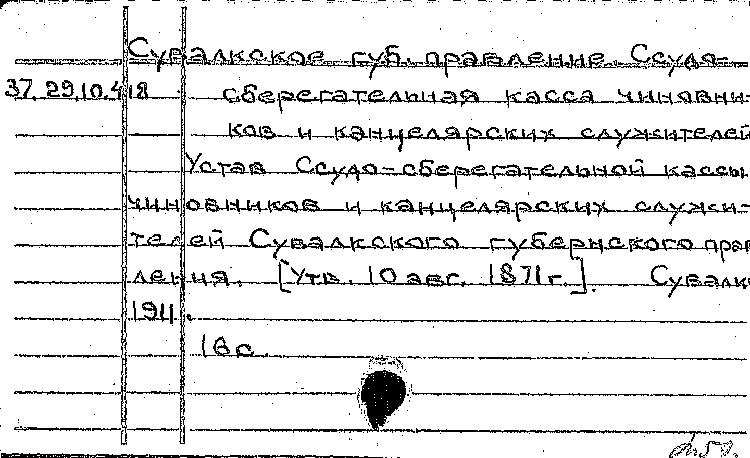 Сувалкское губ. правление. Ссудо-
37.29.10.418 сберегательная касса чиновни-
ков и канцелярских служителей
Устав Ссудо-сберегательной кассы
чиновников и канцелярских служи-
телей Сувалкского губернского прав
ления. [Утв. 10 авг. 1871 г.]. Сувалк
1911.
16 с.